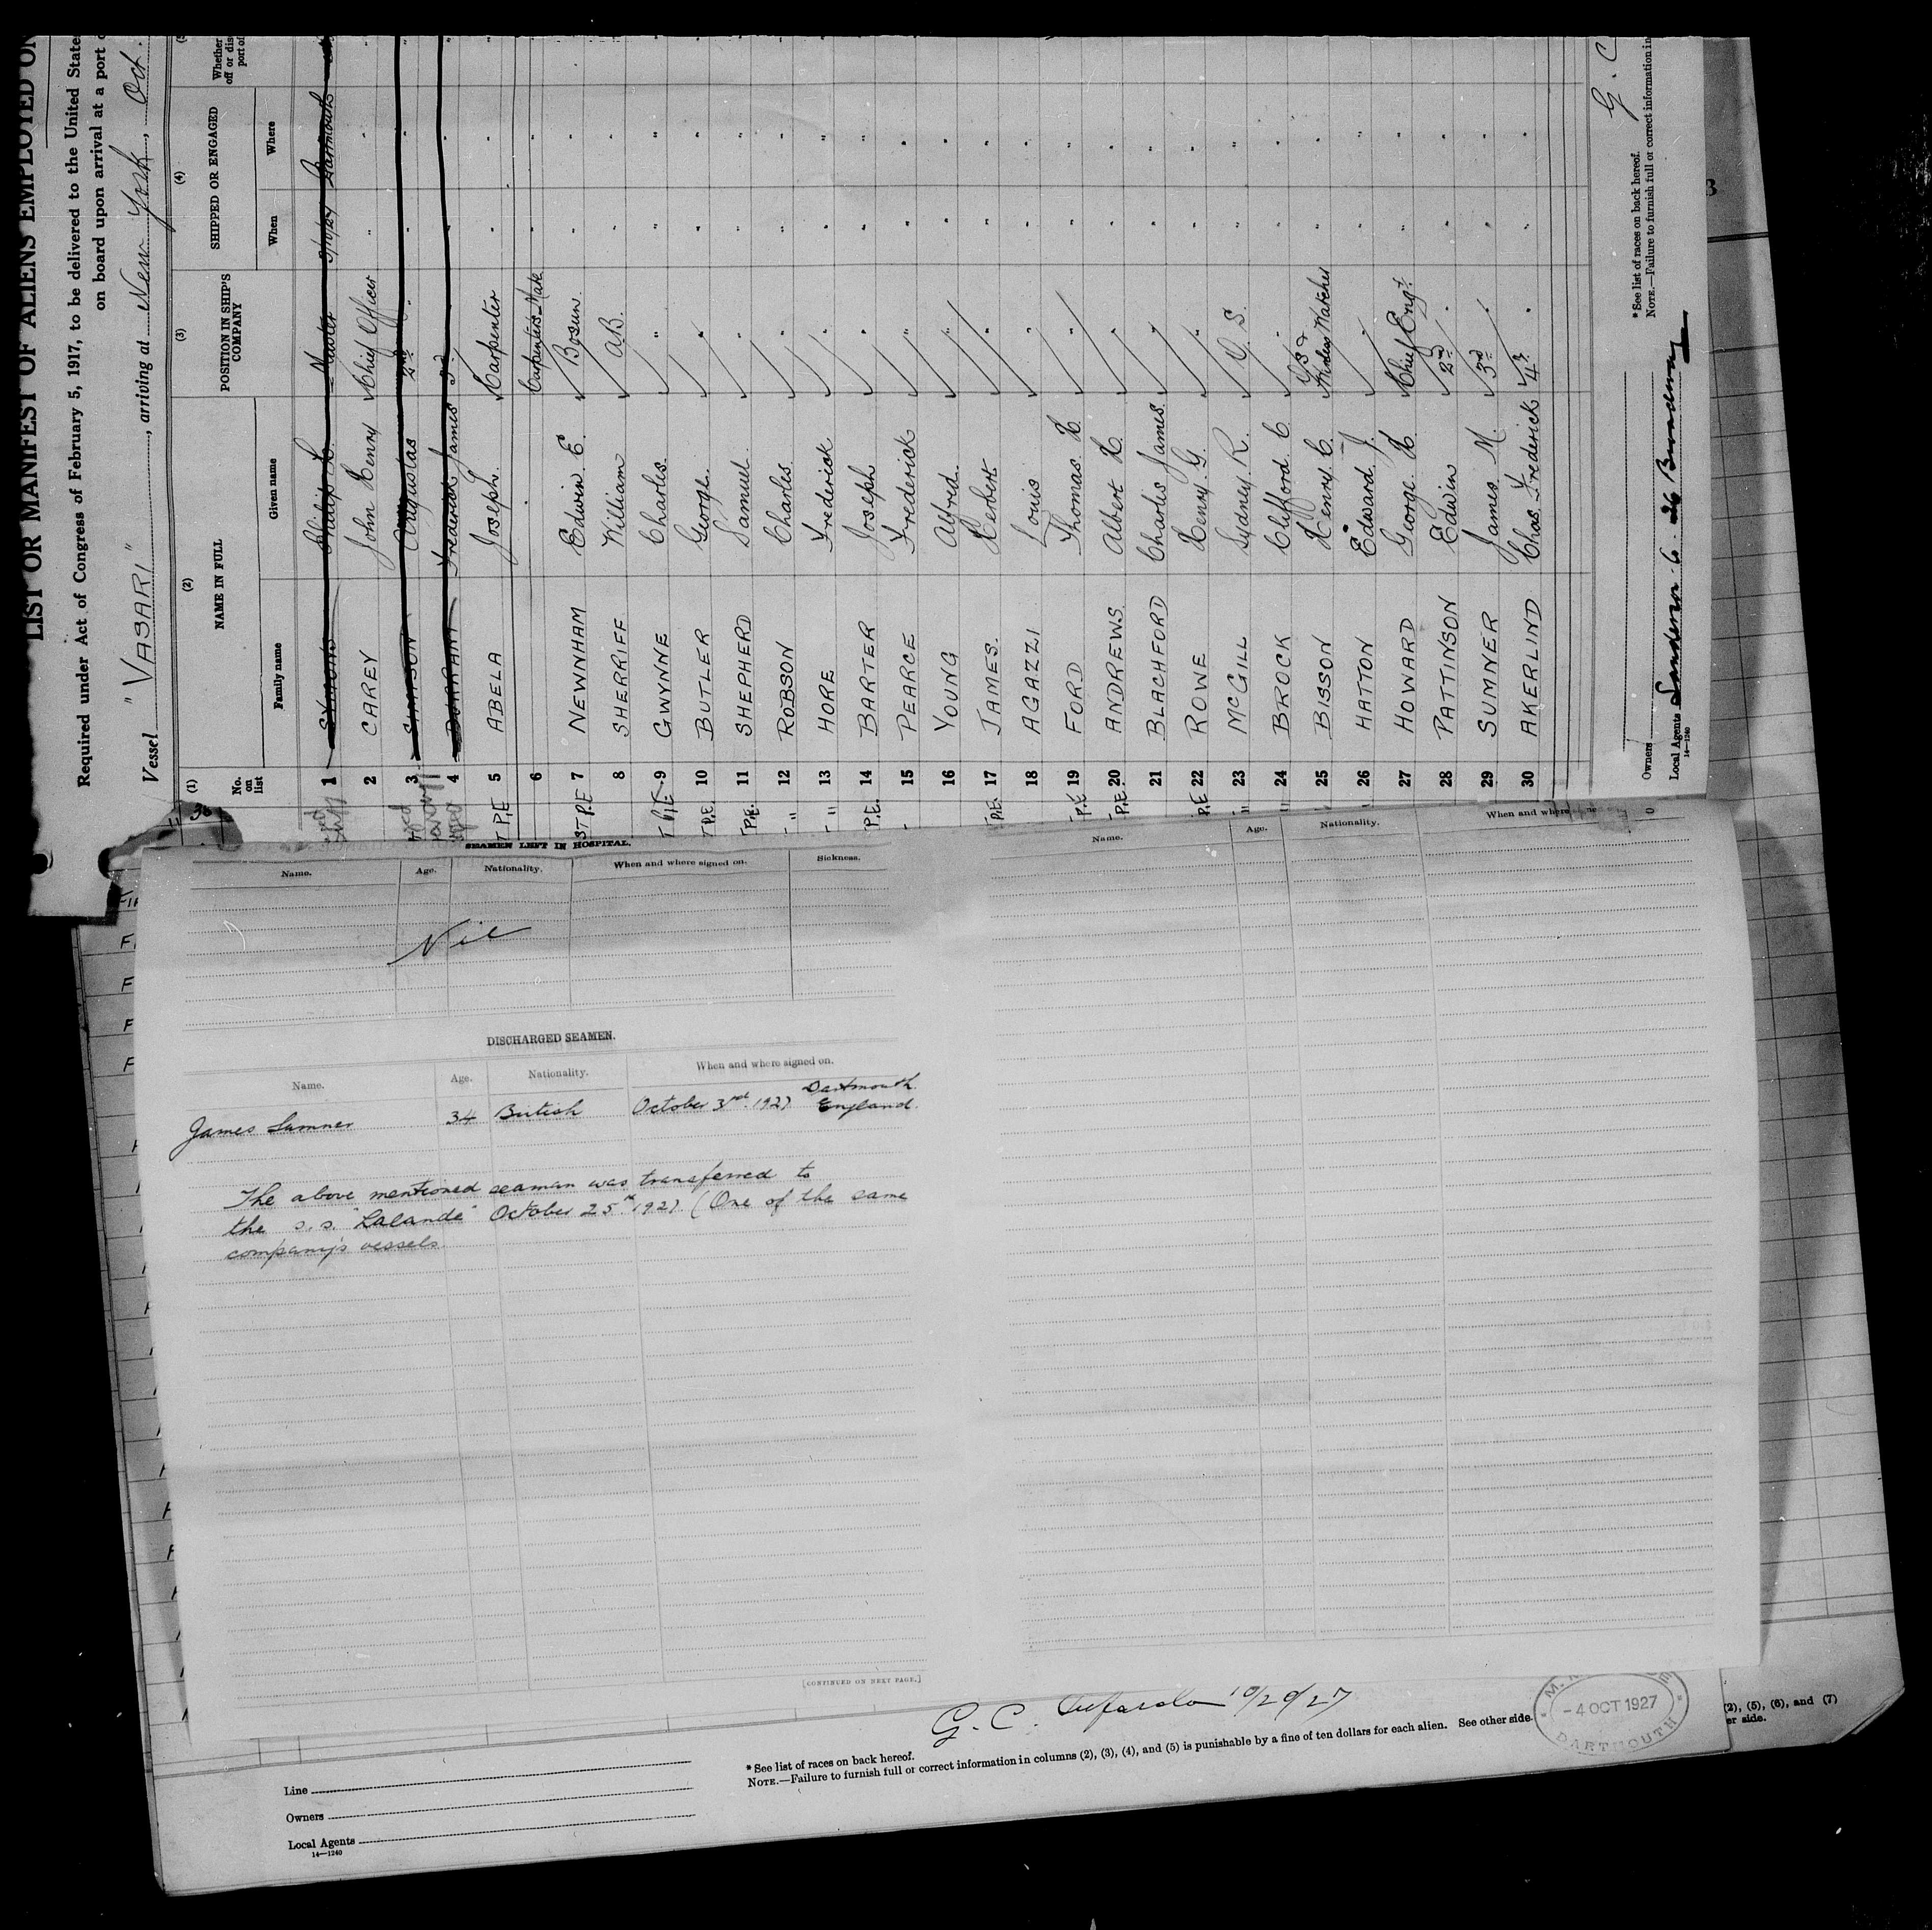 LIST OR MANIFEST OF ALIENS EMPLOYED ON
Required under Act of Congress of February 5, 1917, to be delivered to the United State
on board upon arrival at a port
Vessel "VASARI", arriving at New York, Oct.
(1) (2) (3) (4)
No. on list NAME IN FULL POSITION IN SHIP'S COMPANY SHIPPED OR ENGAGED Whether
Family name Given name When Where
1 SYMONS Philip Master 3/10/27 Dartmouth
2 CAREY John Henry Chief Officer " "
3 SIMPSON Augustas 2nd " "
4 DURRANT Frederick James 3rd " "
T P.E 5 ABELA Joseph Carpenter " "
6 Carpenters Mate " "
ST P.E 7 NEWNHAM Edwin E. Bosun " "
8 SHERRIFF William A.B. " "
T P.E 9 GWYNNE Charles " " "
T P.E. 10 BUTLER George " " "
T P.E. 11 SHEPHERD Samuel " " "
" 12 ROBSON Charles " " "
" 13 HORE Frederick " " "
P.E. 14 BARTER Joseph " " "
15 PEARCE Frederick " " "
16 YOUNG Alfred " " "
P.E. 17 JAMES Herbert " " "
18 AGAZZI Louis " " "
P.E 19 FORD Thomas H. " " "
P.E. 20 ANDREWS Albert H. " " "
21 BLACHFORD Charles James " " "
P.E 22 ROWE Henry G. " " "
" 23 McGILL Sydney R. O.S. " "
" 24 BROCK Clifford C " " "
25 BISSON Henry C. O.S & Wireless Watcher " "
26 HATTON Edward J. " " "
27 HOWARD George H. Chief Engr. " "
28 PATTINSON Edwin 2nd " " "
29 SUMNER James M. 3rd " " "
30 AKERLIND Chas Frederick 4th " " "
Owners
Local Agents Sanderson & 26 Broadway
14—1240
G. C
*See list of races on back hereof.
NOTE.—Failure to furnish full or correct information in
SEAMEN LEFT IN HOSPITAL.
Name. Age. Nationality. When and where signed on. Sickness.
Nil
DISCHARGED SEAMEN.
Name. Age. Nationality. When and where signed on.
James Sumner 34 British October 3rd. 1927 Dartmouth England.
The above mentioned seaman was transferred to
the s.s. "Lalande" October 25th 1927. (One of the same
company's vessels
[CONTINUED ON NEXT PAGE.]
Name. Age. Nationality. When and where
G. C. 10/20/27
*See list of races on back hereof.
NOTE.—Failure to furnish full or correct information in columns (2), (3), (4), and (5) is punishable by a fine of ten dollars for each alien. See other side.
- 4 OCT 1927
DARTMOUTH
(2), (5), (6), and (7)
er side.
Line
Owners
Local Agents
14—1240